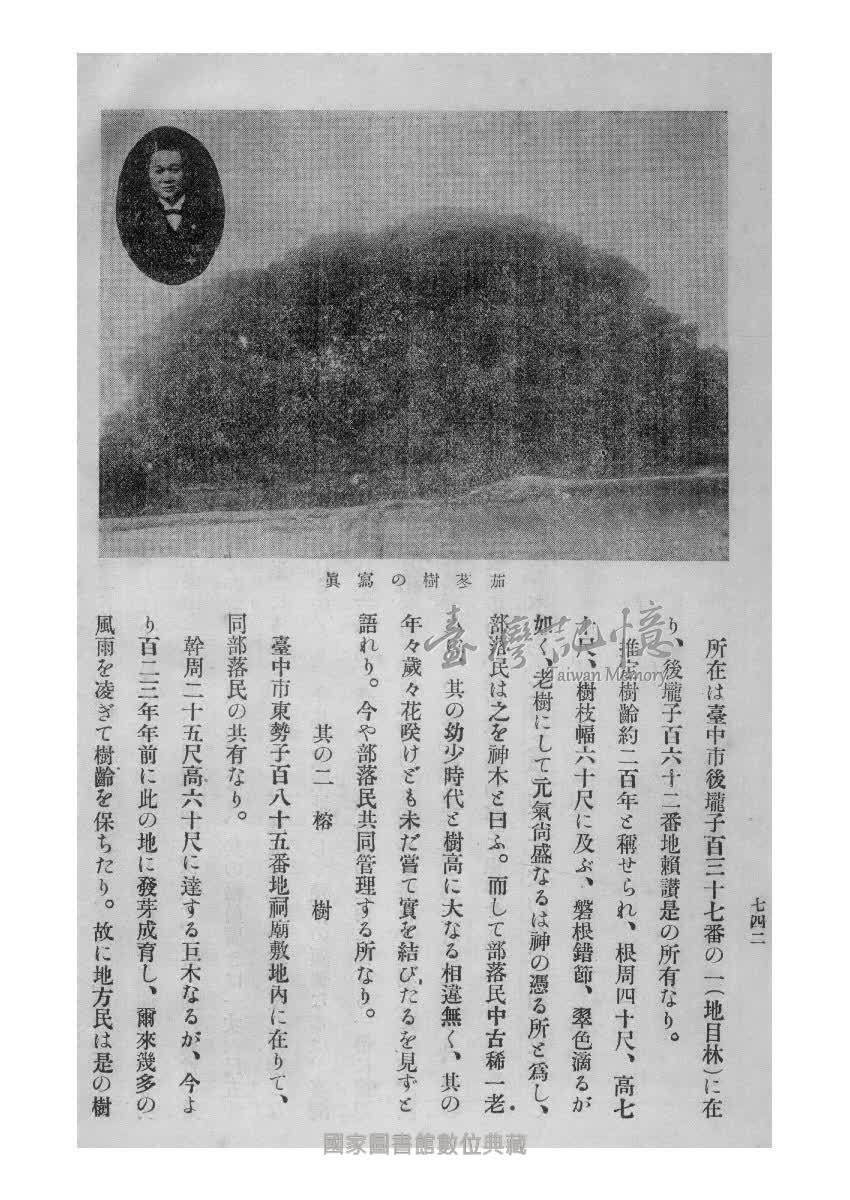 七四二
茄苳樹の寫眞
所在は臺中市後壠子百三十七番の一(地目林)に在
り、後壠子百六十二番地賴讃是の所有なり。
推定樹齡約二百年と稱せられ、根周四十尺、高七
十尺、樹枝幅六十尺に及ぶ、磐根錯節、翠色滴るが
如く、老樹にして元氣尙盛なるは神の憑る所と爲し、
部落民は之を神木と曰ふ。而して部落民中古稀一老
其の幼少時代と樹高に大なる相違無く、其の
年々歲々花咲けども未だ嘗て實を結びたるを見ずと
語れり。今や部落民共同管理する所なり。
其の二 榕樹
臺中市東勢子百八十五番地祠廟敷地內に在りて、
同部落民の共有なり。
幹周二十五尺高六十尺に達する巨木なるが、今よ
り百二三年年前に此の地に發芽成育し、爾來幾多の
風雨を凌ぎて樹齡を保ちたり。故に地方民は是の樹
臺灣記憶
Taiwan Memory
國家圖書館數位典藏